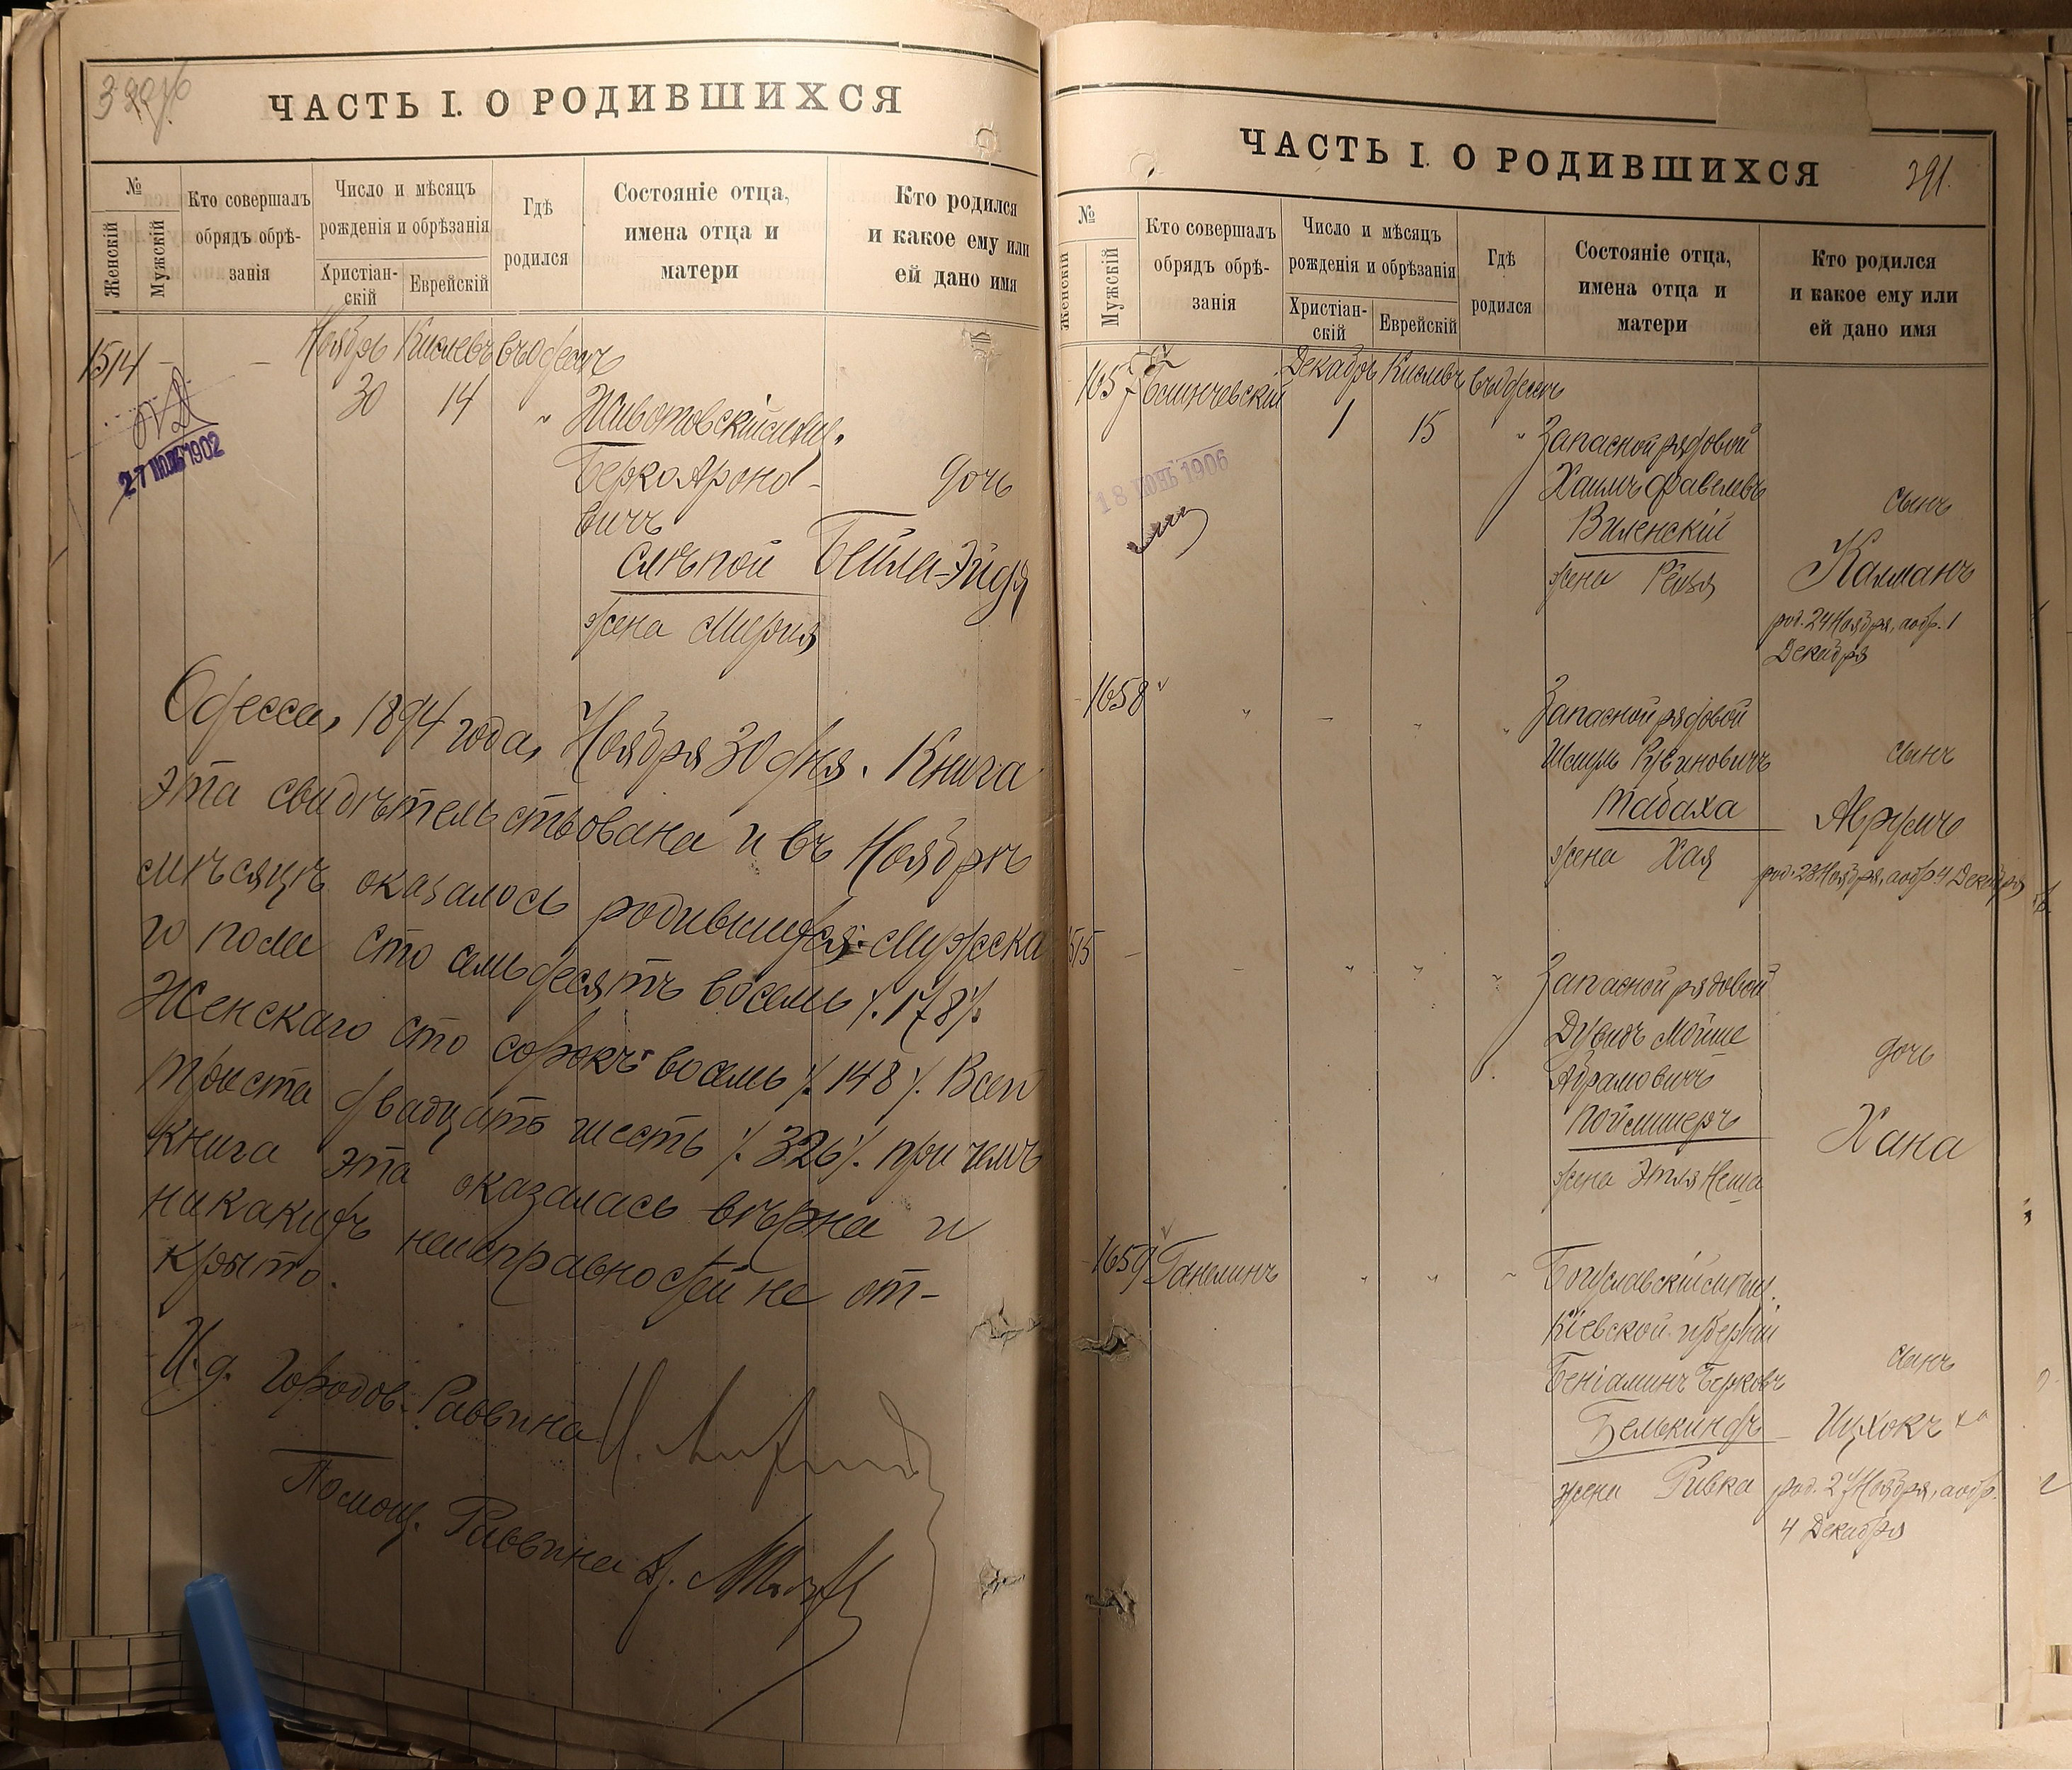 ЧАСТЬ I. О РОДИВШИХСЯ
№
Женскій
Мужскій
Кто совершалъ
обрядъ обрѣ-
занія
Число и мѣсяцъ
рожденія и обрѣзанія
Христіан-
скій
Еврейскій
Гдѣ
родился
Состояніе отца,
имена отца и
матери
Кто родился
и какое ему или
ей дано имя
Ноябрь Кислевъ въ Одессѣ
1514 - -
30 14 " Животовскій мѣщ.
27 1902
Берко Ароно-
вичъ
дочь
Слѣпой Бейла-Эйдя
жена Мирия
Одесса, 1894 года, Ноября 30 дня. Книга
эта свидѣтельствована и въ Ноябрѣ
мѣсяцѣ оказалось родившихся: Мужска
го пола сто семьдесятъ восемь /.178/.
Женскаго сто сорокъ восемь /.148/. Всего
триста двадцать шесть /.326/. при чемъ
книга эта оказалась вѣрна и
никакихъ неисправностей не от-
крыто.
И. д. Городов. Раввина
Помощ. Раввина
ЧАСТЬ I. О РОДИВШИХСЯ
291.
№
Женскій
Мужскій
Кто совершалъ
обрядъ обрѣ-
занія
Число и мѣсяцъ
рожденія и обрѣзанія
Христіан-
скій
Еврейскій
Гдѣ
родился
Состояніе отца,
имена отца и
матери
Кто родился
и какое ему или
ей дано имя
Декабрь Кислевъ въ Одессѣ
1657
1 15 " Запасной рядовой
18 ІЮНЬ 1906
Хаимъ Файвелевъ
сынъ
Виленскій
Калманъ
жена Рейзя
род. 24 Ноября, а обр. 1
Декабря
1658 " - " " Запасной рядовой
Шмуль Рувиновичъ
сынъ
Табаха
Аврумъ
жена Хая
род. 23 Ноября, а обр. 4 Декабря
1515 - - " " " Запасной рядовой
Дувидъ Мойше
Абрамовичъ
дочь
Пойсинеръ
Хана
жена Этля Неша
1659 Ганелинъ " " " Богуславскій мѣщ.
Кіевской губерніи
Беніаминъ Берковъ
сынъ
Белькиндъ
Ицхокъ
жена Ривка
род. 27 Ноября, а обр.
4 Декабря